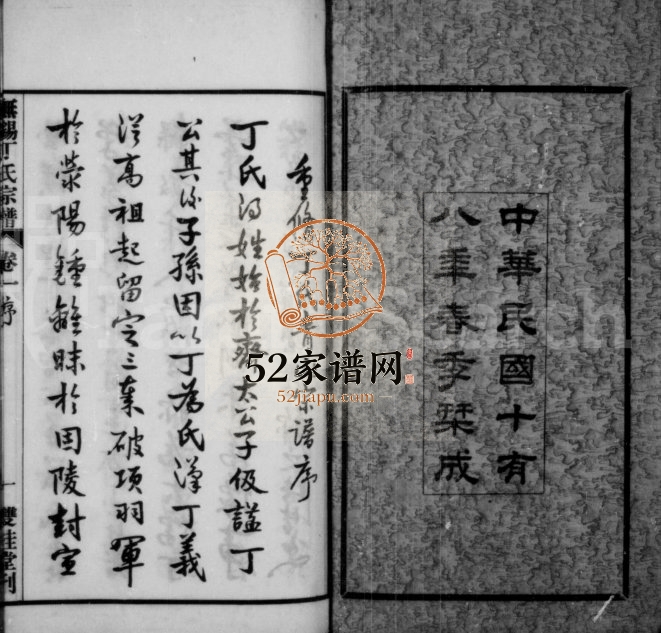 中華民國十有
八年春季栞成
重修
譜序
丁氏得姓始於齊太公子伋諡丁
公其後子孫因以丁為氏漢丁義
從高祖起留定三秦破項羽軍
於滎陽鍾離昧於固陵封宣
無錫丁氏宗譜 卷一 序 一 雙桂堂刊
52家谱网
52jiapu.com